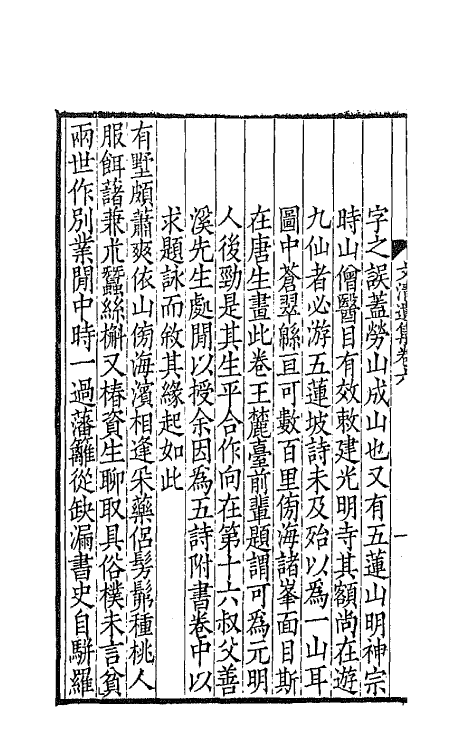 文清遺集卷六
一
字之誤蓋勞山成山也又有五蓮山明神宗
時山僧醫目有效敕建光明寺其額尚在遊
九仙者必游五蓮坡詩未及殆以為一山耳
圖中蒼翠緜亘可數百里傍海諸峯面目斯
在唐生畫此卷王麓臺前輩題謂可為元明
人後勁是其生平合作向在第十六叔父善
溪先生處閒以授余因為五詩附書卷中以
求題詠而敘其緣起如此
有墅頗蕭爽依山傍海濱相逢采藥侶髣髴種桃人
服餌藷兼朮蠶絲槲又椿資生聊取具俗樸未言貧
兩世作別業閒中時一過藩籬從缺漏書史自駢羅